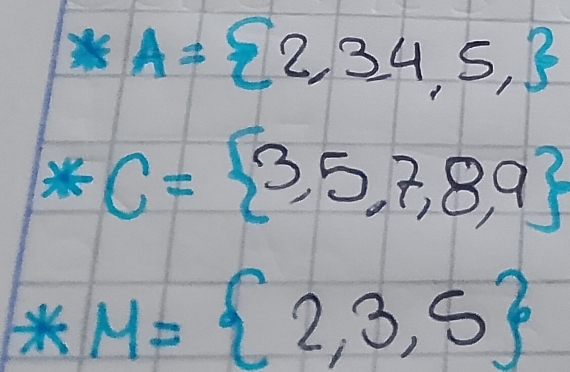 * A = {2, 3, 4, 5, }
* C = {3, 5, 7, 8, 9}
* M = { 2, 3, 5 }